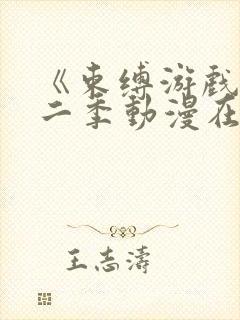 《束缚游戏
二季動漫在
王志濤